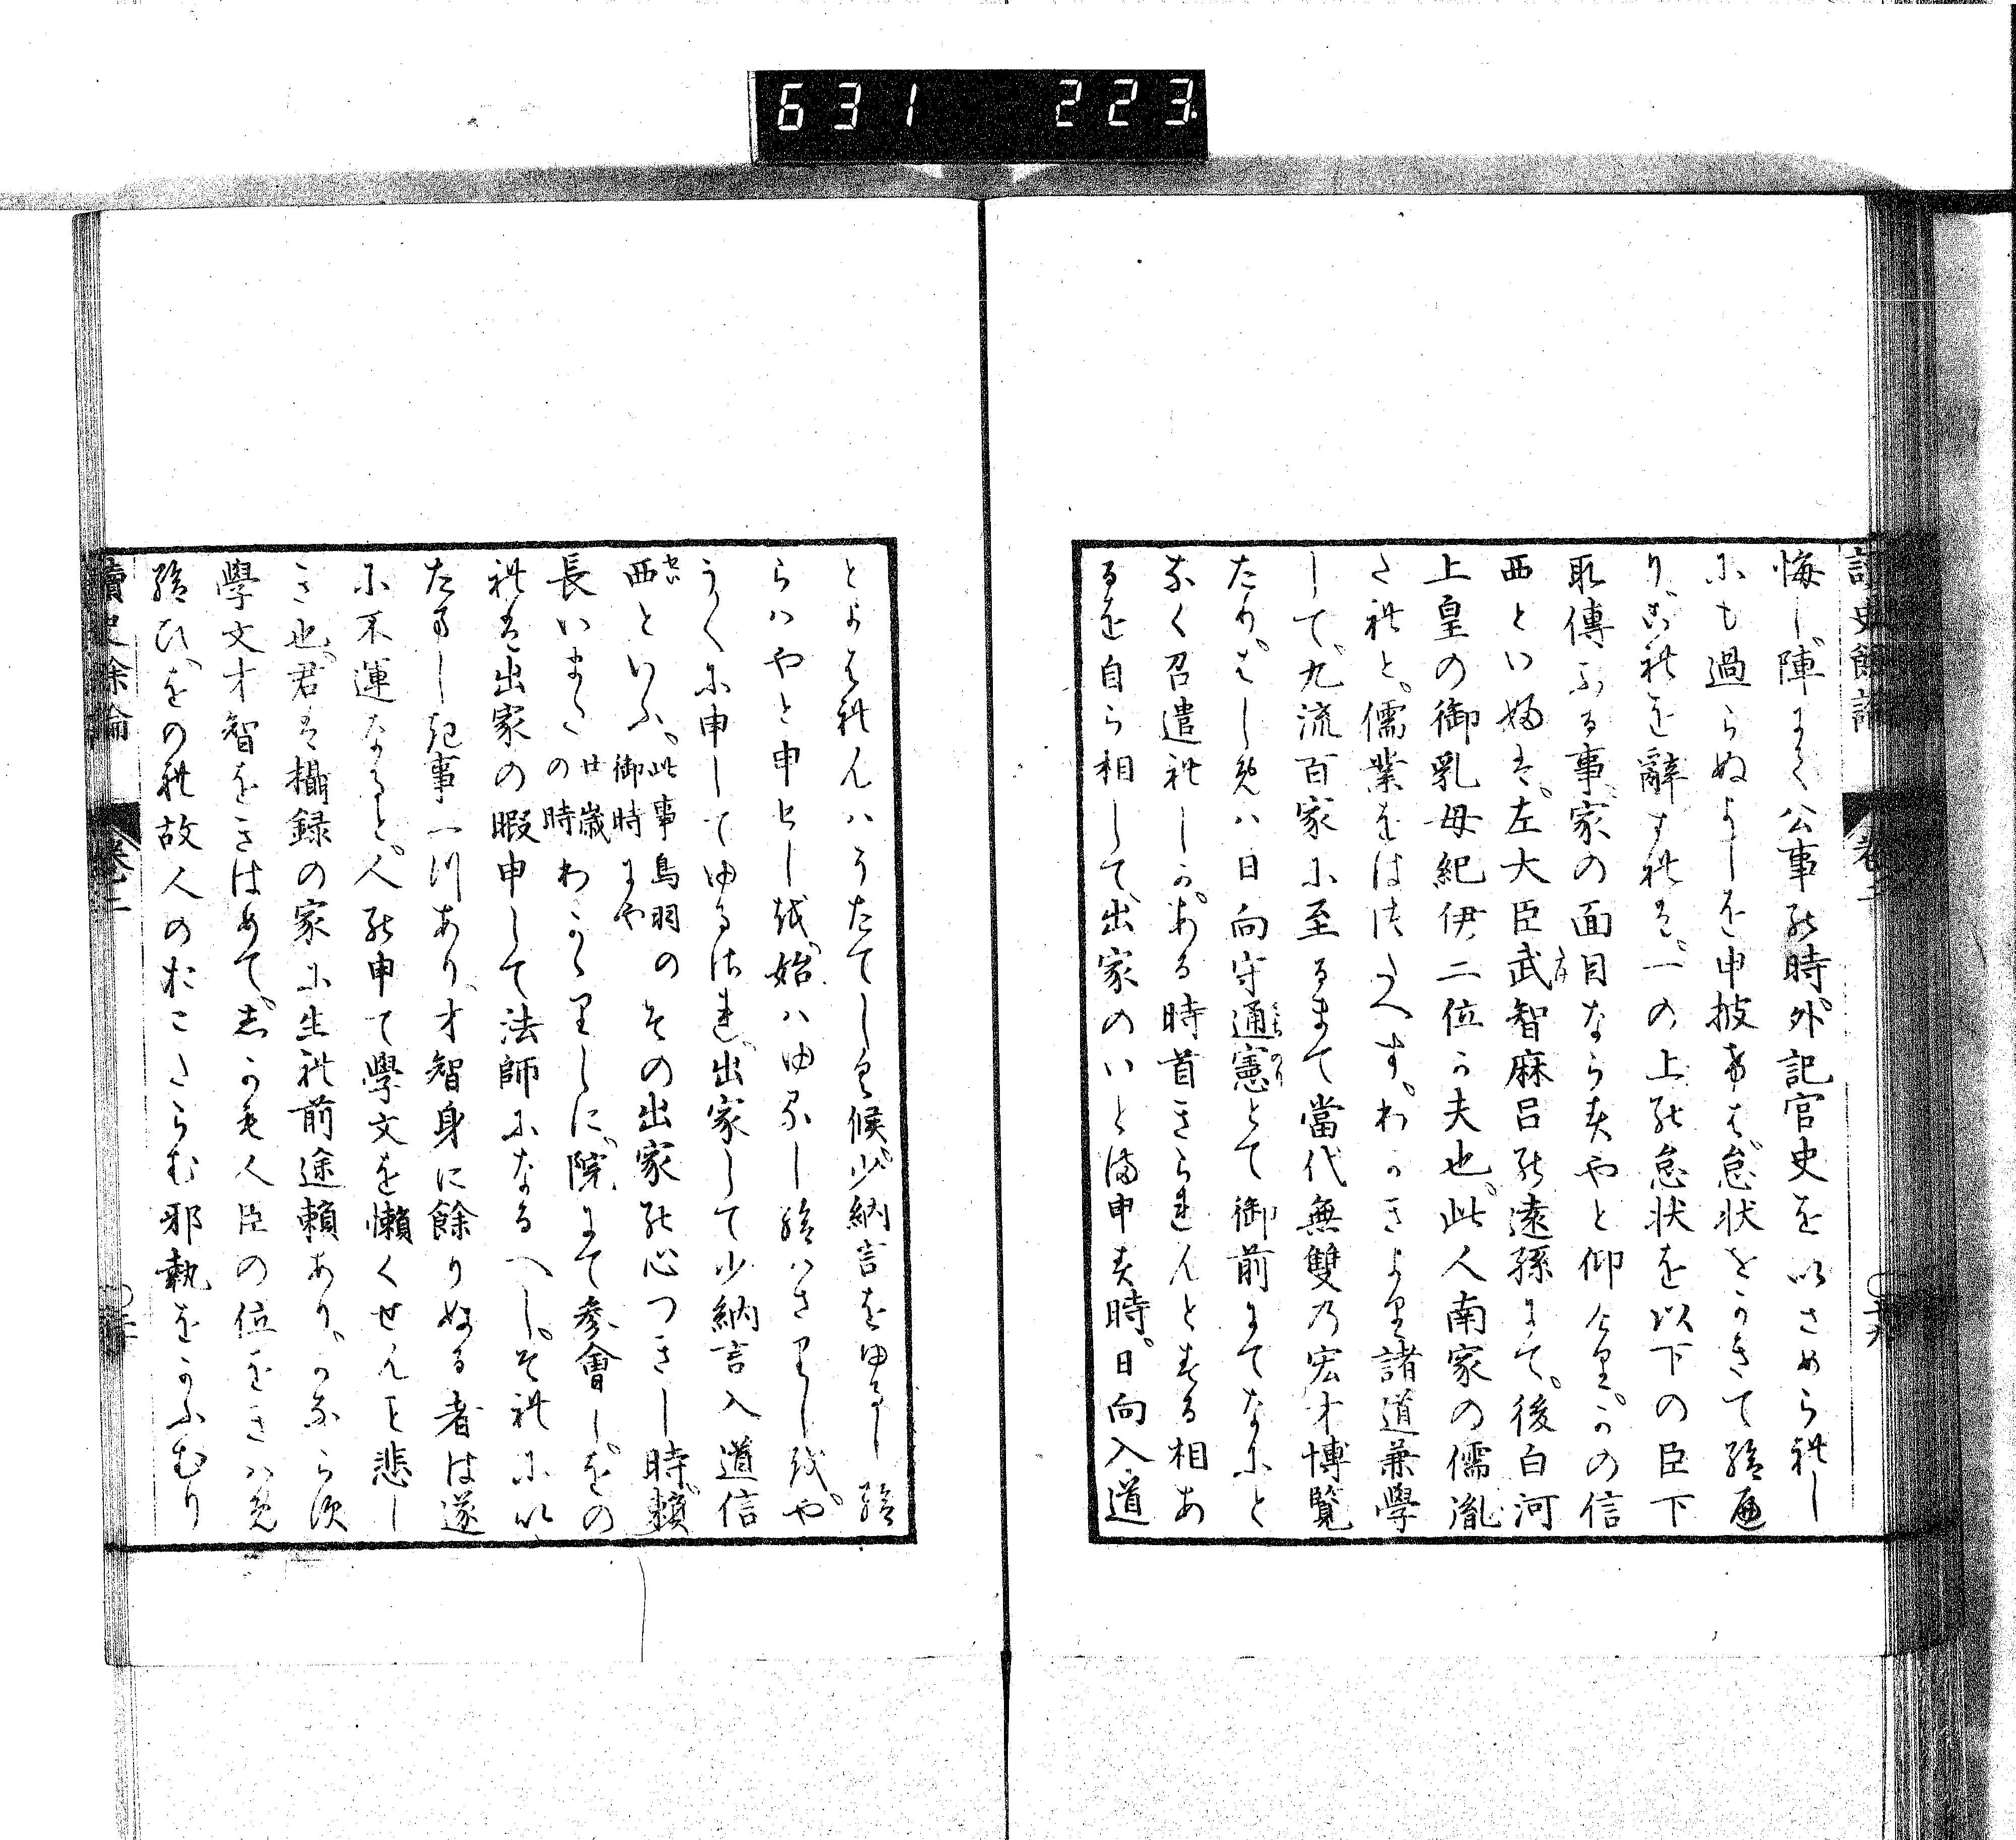 631 223
讀史餘論 卷二
悔し陣にて公事の時外記官史をいさめられし
にも過らぬよしを申披けば怠状をかきて給
りこれを辭すれは一の上の怠状を以下の臣下
取傳ふる事家の面目ならすやと仰ける
西といふは左大臣武智麻呂の遠孫にて後白河
上皇の御乳母紀伊二位か夫也此人南家の儒胤
されと儒業をはつたへすわかきより諸道兼學
して九流百家に至るまて當代無雙の宏才博覽
たりはしめハ日向守通憲とて御前にてなにと
なく召遣れしかある時首きられんとする相あ
るを自ら相して出家のいとま申す時日向入道
とよはれんハうたてしく候少納言をゆるし給
らハやと申せしを始ハゆるし給ハさりしをや
うくに申してゆるされ出家して少納言入道信
西といふ此事鳥羽の御時にやその出家の心つきし時頼
長いまた廿歳の時わかゝりしに院にて參會しその
れは出家の暇申して法師になるへしそれにい
たましき事一ツあり才智身に餘りぬる者は遂
に不運なると人の申て學文を懶くせんを悲し
き也君は攝録の家に生れ前途頼ありかならす
學文才智をきはめてしかも人臣の位をきハめ
給ひその故人のおこさらむ邪執をかふむり
讀史餘論 卷二